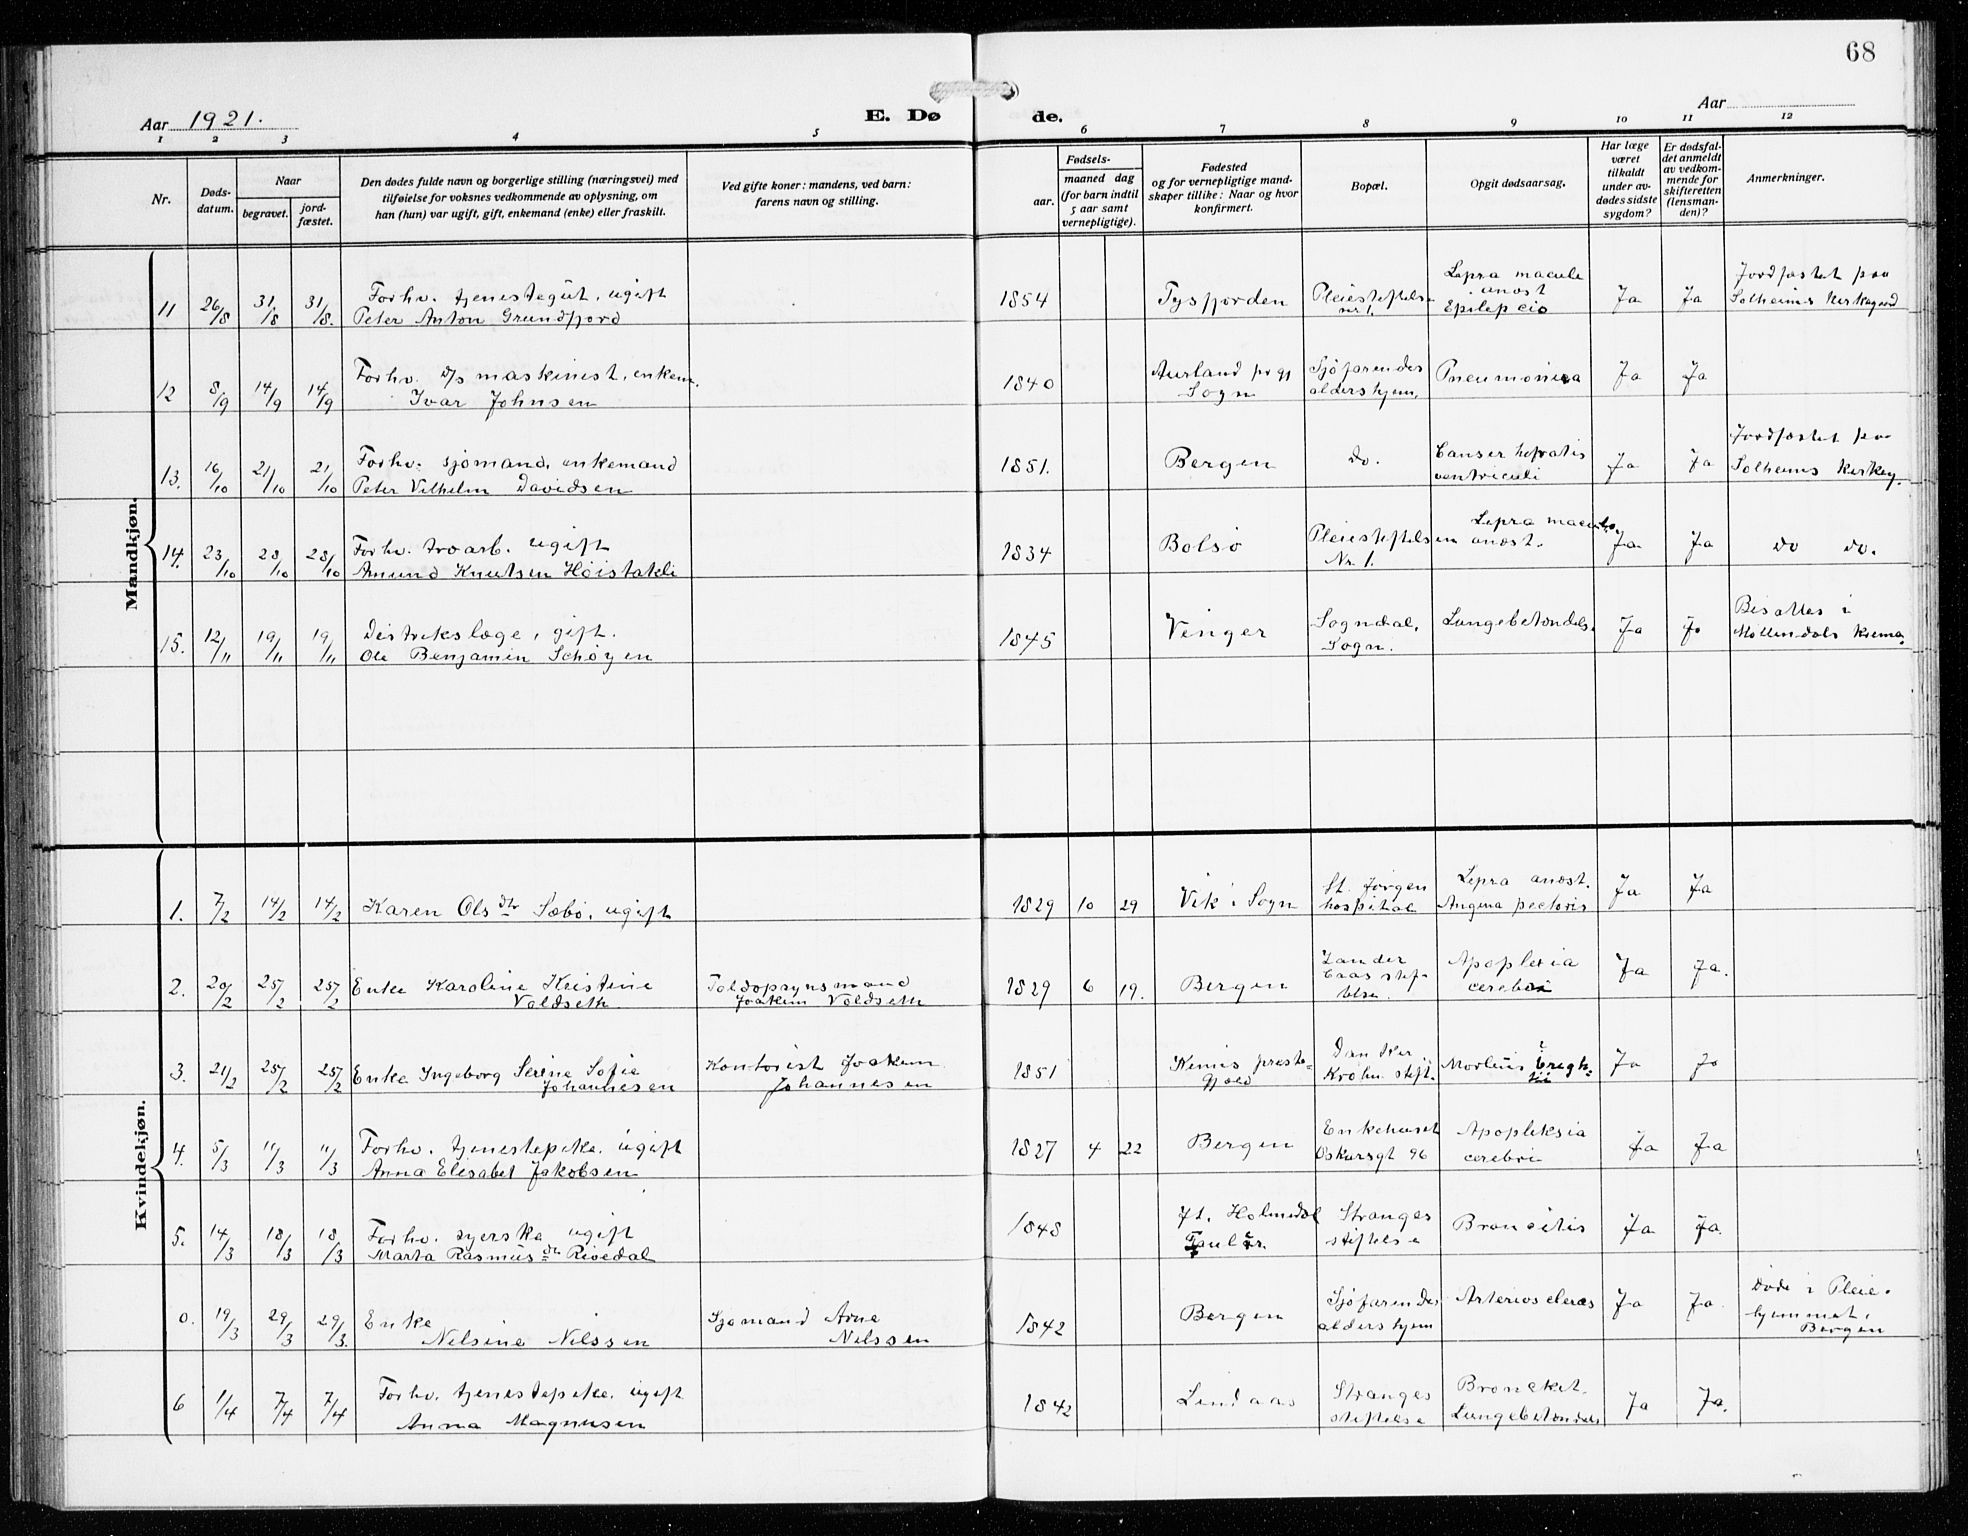 68
Aar 1921.
E. Dø de.
Aar
1 2 3 4 5 6 7 8 9 10 11 12
Nr.
Døds-
datum.
Naar
begravet.
jord-
fæstet.
Den dødes fulde navn og borgerlige stilling (næringsvei) med
tilføielse for voksnes vedkommende av oplysning, om
han (hun) var ugift, gift, enkemand (enke) eller fraskilt.
Ved gifte koner: mandens, ved barn:
farens navn og stilling.
Fødsels-
aar.
maaned dag
(for barn indtil
5 aar samt
vernepligtige).
Fødested
og for vernepligtige mand-
skaper tillike: Naar og hvor
konfirmert.
Bopæl.
Opgit dødsaarsag.
Har læge
været
tilkaldt
under av-
dødes sidste
sygdom?
Er dødsfal-
det anmeldt
av vedkom-
mende for
skifteretten
(lensman-
den)?
Anmerkninger.
Mandkjøn.
11 26/8 31/8 31/8. Forhv. tjenestegut, ugift
Peter Anton Grundfjord
1854 Tysfjorden Pleiestiftelse
nr 1.
Lepra macule
anæst
Epilepcio
Ja Ja Jordfæstet paa
Solheims Kirkegaard
12 8/9 14/9 14/9 Forhv. D/S maskinist, enkem.
Ivar Johnsen
1840 Aurland prgj
Sogn
Sjøfarendes
aldershjem,
Pneumonia Ja Ja
13. 16/10 21/10 21/10 Forhv. sjømand, enkemand
Peter Vilhelm Davidsen
1851. Bergen do. Canser hepatis
ventriculi
Ja Ja Jordfæstet paa
Solheims Kirkeg.
14. 23/10 28/10 28/10 Forhv. ugift
Amund Knutsen Høistakli
1834 Bolsø Pleiestiftelsen
Nr. 1.
Lepra macule
anæst.
Ja Ja do do.
15. 12/11 19/11 19/11 Distrikslæge, gift.
Ole Benjamin Schøyen
1845 Vinger Sogndal,
Sogn.
Lungebetændels. Ja Ja Bisattes i
Møllendals Krema.
Kvindekjøn.
1. 7/2 14/2 14/2 Karen Olsdtr Sæbø, ugift
1829 10 29 Vik i Sogn St. Jørgen
hospital
Lepra anæst.
Angina pectoris
Ja Ja
2. 20/2 25/2 25/2 Enke Karoline Kristine
Voldseth
Toldopsynsmand
Joakim Voldseth
1829 6 19. Bergen Zander
Kaas stif-
telse.
Apoplexia
cerebri
Ja Ja.
3. 21/2 25/2 25/2 Enke Ingeborg Serine Sofie
Johannesen
Kontorist Joakim
Johannesen
1851 Kinns preste-
gjæld
Danker
Krohn stift.
Morbus Brigh-
tii
Ja Ja
4. 5/3 11/3 11/3 Forhv. tjenestepike, ugift
Anna Elisabet Jakobsen
1827 4 22 Bergen Enkehuset
Oskarsgt 96
Apopleksia
cerebri
Ja Ja
5. 14/3 18/3 18/3 Forhv. syerske ugift
Marta Rasmusdtr Rivedal
1848 Yt. Holmedal
Stranges
stiftelse
Broncitis Ja Ja.
0. 19/3 29/3 29/3. Enke
Nilsine Nilssen
Sjømand Arne
Nilssen
1842 Bergen Sjøfarendes
aldershjem
Arterioscleros Ja Ja. Døde i Pleie-
hjemmet,
Bergen
6 1/4 7/4 7/4 Forhv. tjenestepike, ugift
Anna Magnusen
1842 Lindaas Stranges
stiftelse
Bronckit.
Lungebetændels
Ja Ja.